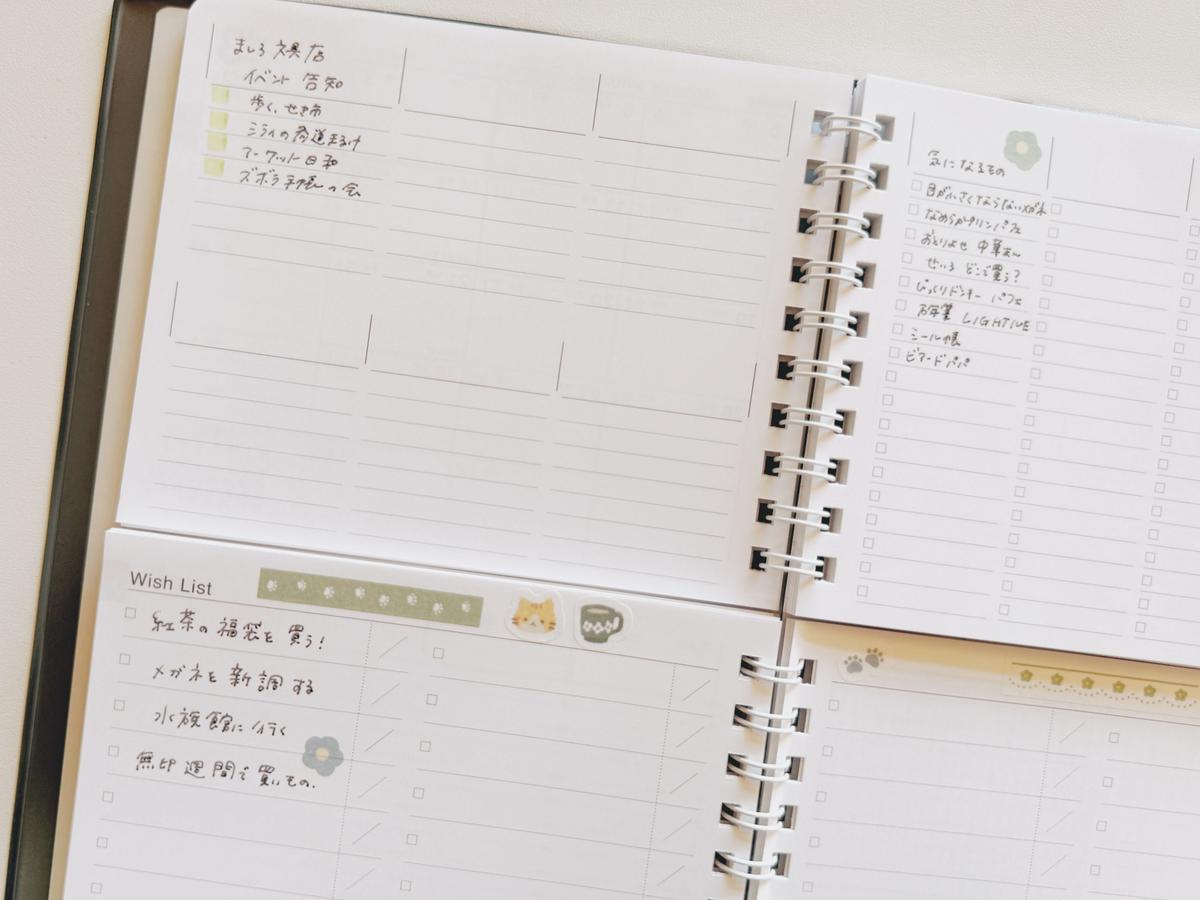 ましろ文具店
イベント 告知
歩く、せき市
ミライの商道まるけ
アーケット日和
ズボラ手帳の会
気になるもの
目が小さくならないメガネ
なめらかプリンパフェ
おとりよせ 中華まん
せいろ どこで買う?
びっくりドンキー パフェ
万年筆 LIGHTIVE
シール帳
ビアードパパ
Wish List
紅茶の福袋を買う!
メガネを新調する
水族館に行く
無印週間で買いもの.